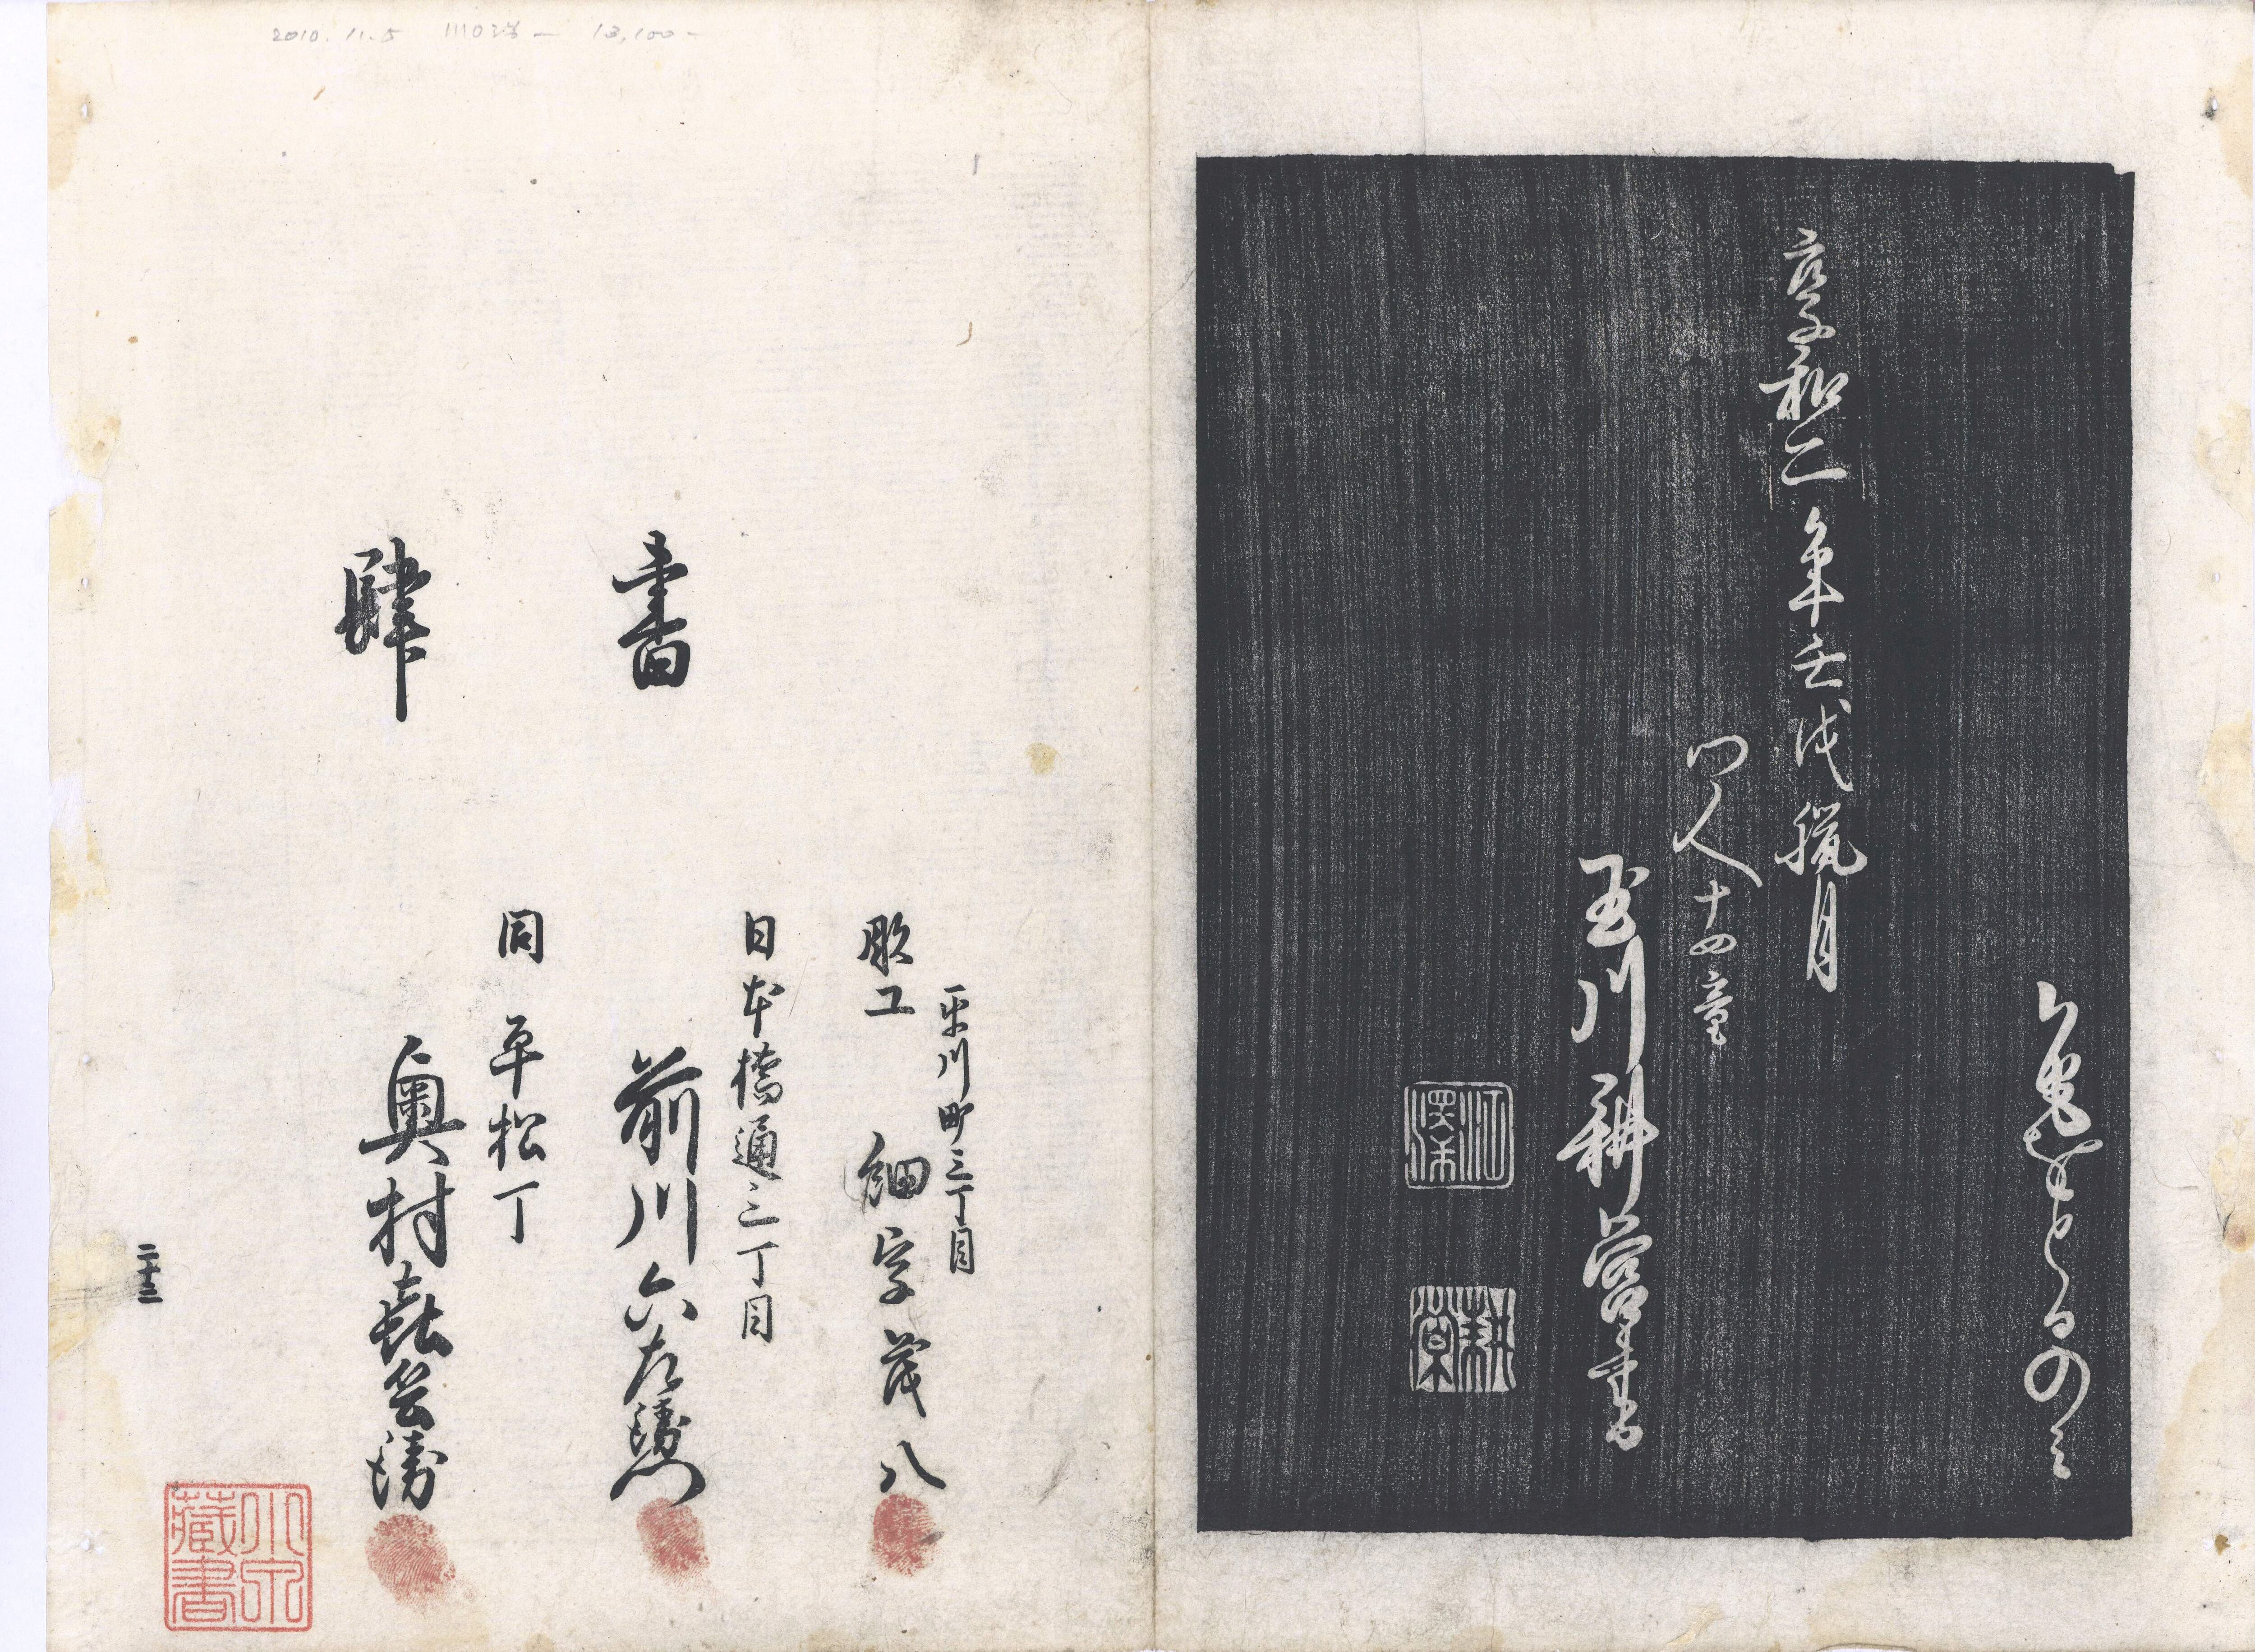 享和二年壬戌臘月
門人十四童
玉川耕営書
平川町三丁目
彫工 細字茂八
日本橋通三丁目
前川六左衛門
同 平松丁
奥村喜兵衛
書
肆
二十三
小宗蔵書
2010. 11. 5
13,100-